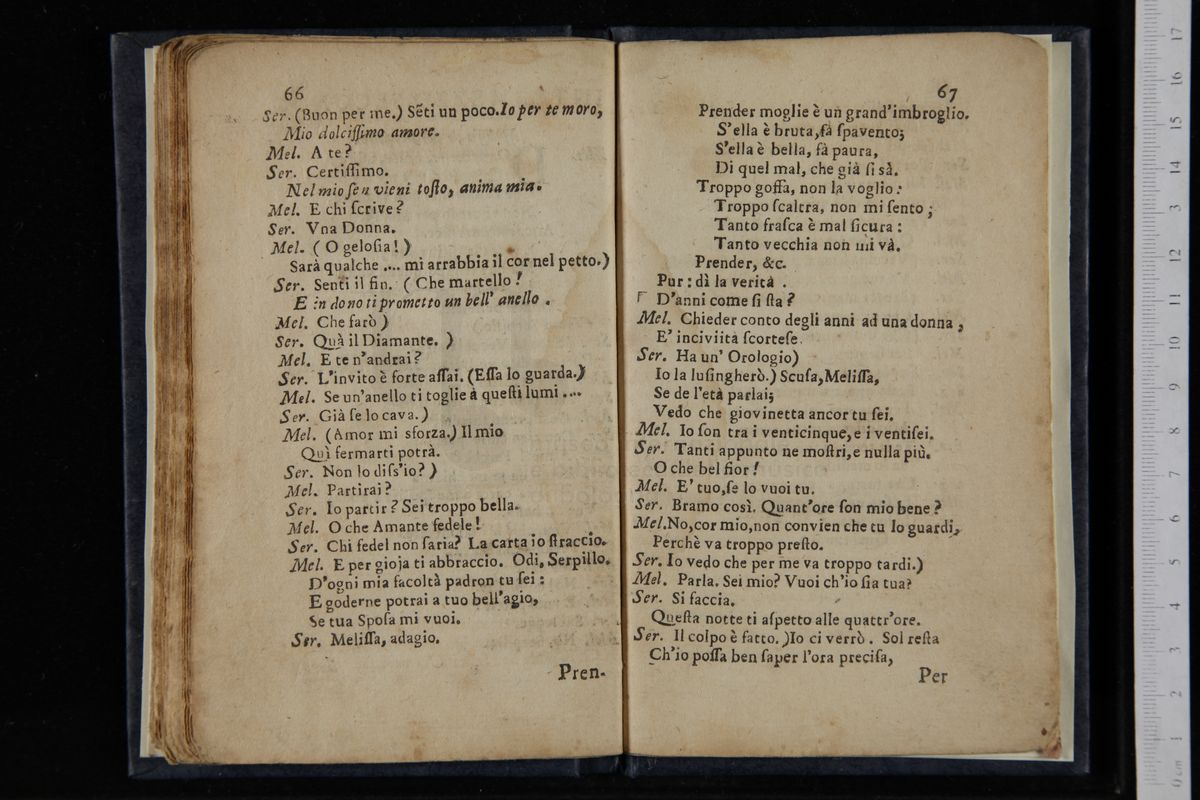 66
Ser. (Buon per me.) Sẽti un poco. Io per te moro,
Mio dolciſſimo amore.
Mel. A te?
Ser. Certiſſimo.
Nel mio ſen vieni toſto, anima mia.
Mel. E chi ſcrive?
Ser. Vna Donna.
Mel. ( O geloſia! )
Sarà qualche .... mi arrabbia il cor nel petto.)
Ser. Senti il fin. ( Che martello !
E in dono ti prometto un bell' anello .
Mel. Che farò )
Ser. Quà il Diamante. )
Mel. E te n'andrai?
Ser. L'invito è forte aſſai. (Eſſa lo guarda.)
Mel. Se un'anello ti toglie à queſti lumi ....
Ser. Già ſe lo cava. )
Mel. (Amor mi sforza.) Il mio
Quì fermarti potrà.
Ser. Non lo diſs'io? )
Mel. Partirai?
Ser. Io partir? Sei troppo bella.
Mel. O che Amante fedele!
Ser. Chi fedel non ſaria? La carta io ſtraccio.
Mel. E per gioja ti abbraccio. Odi, Serpillo.
D'ogni mia facoltà padron tu ſei :
E goderne potrai a tuo bell'agio,
Se tua Spoſa mi vuoi.
Ser. Meliſſa, adagio.
Pren-
67
Prender moglie è un grand'imbroglio.
S'ella è bruta, fà ſpavento;
S'ella è bella, fà paura,
Di quel mal, che già ſi sà.
Troppo goffa, non la voglio :
Troppo ſcaltra, non mi ſento ;
Tanto fraſca è mal ſicura :
Tanto vecchia non mi và.
Prender, &c.
Pur : dì la verità .
D'anni come ſi ſta?
Mel. Chieder conto degli anni ad una donna ,
E' inciviità ſcorteſe.
Ser. Ha un' Orologio)
Io la luſingherò.) Scuſa, Meliſſa,
Se de l'età parlai;
Vedo che giovinetta ancor tu ſei.
Mel. Io ſon tra i venticinque, e i ventiſei.
Ser. Tanti appunto ne moſtri, e nulla più.
O che bel fior!
Mel. E' tuo, ſe lo vuoi tu.
Ser. Bramo così. Quant'ore ſon mio bene?
Mel. No, cor mio, non convien che tu lo guardi,
Perchè va troppo preſto.
Ser. Io vedo che per me va troppo tardi.)
Mel. Parla. Sei mio? Vuoi ch'io ſia tua?
Ser. Si faccia.
Queſta notte ti aſpetto alle quattr'ore.
Ser. Il colpo è fatto. )Io ci verrò . Sol reſta
Ch'io poſſa ben ſaper l'ora preciſa,
Per
0 cm 1 2 3 4 5 6 7 8 9 10 11 12 13 14 15 16 17